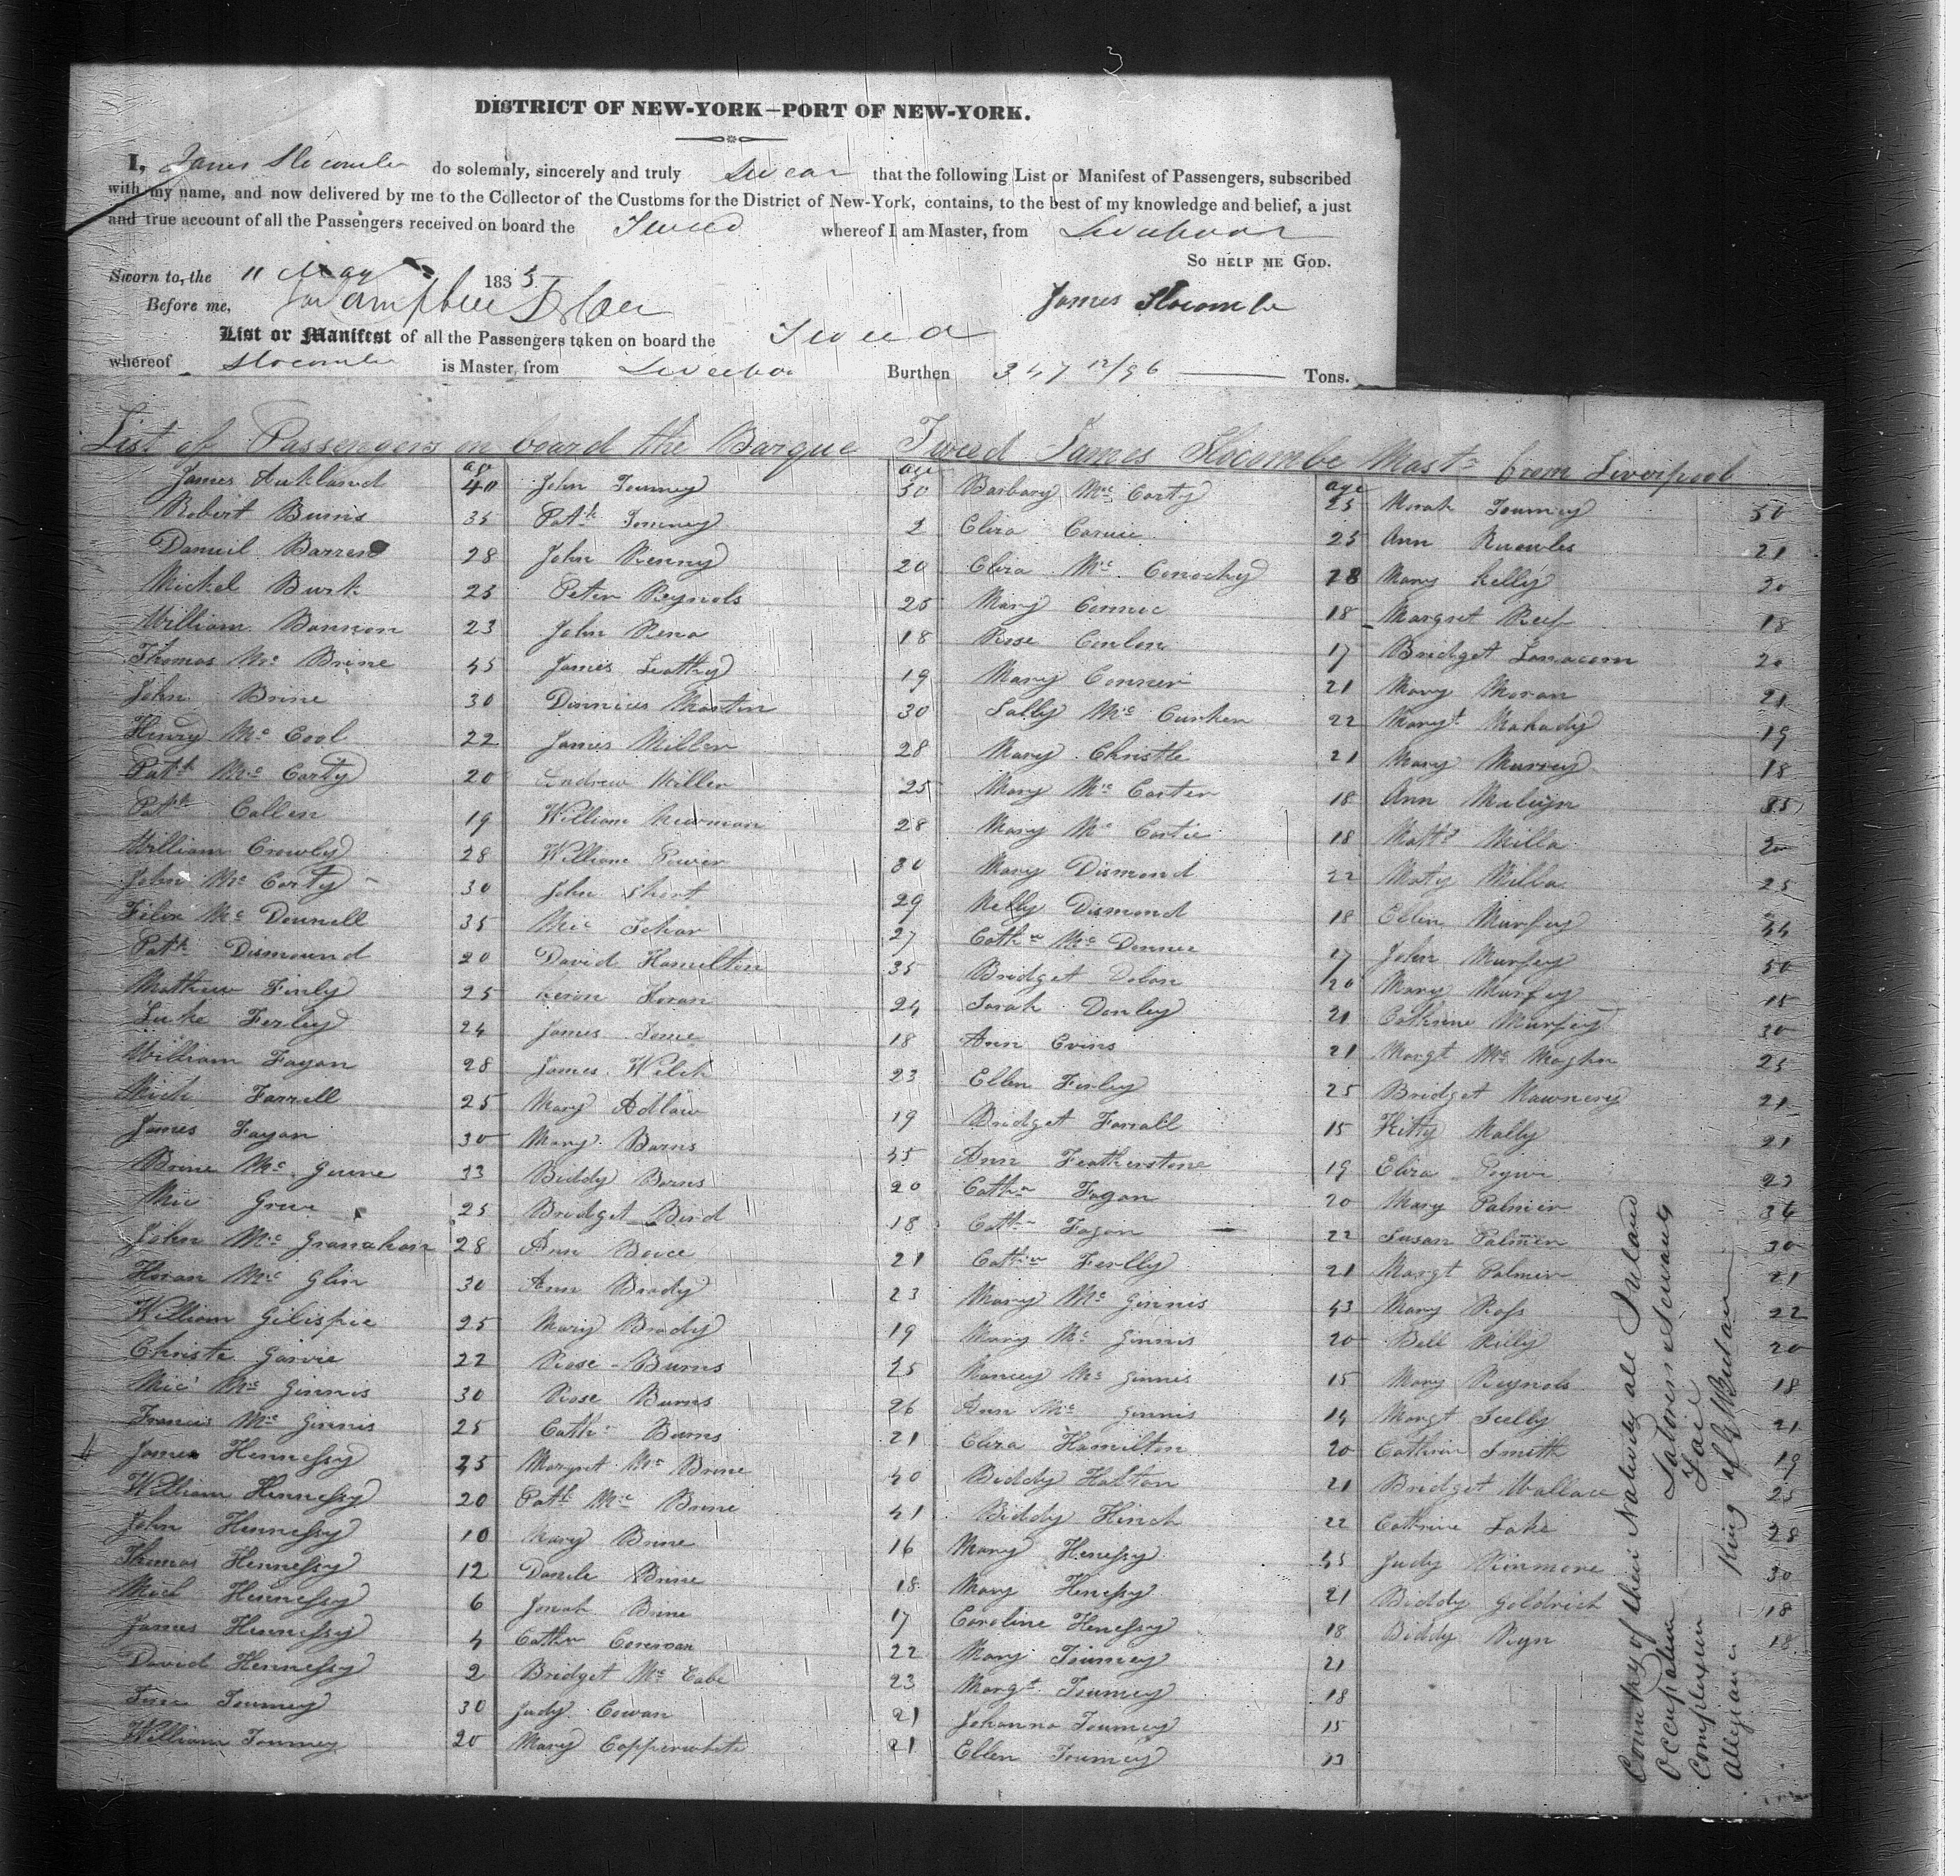 3
DISTRICT OF NEW-YORK—PORT OF NEW-YORK.
I, James Slocombe do solemnly, sincerely and truly Swear that the following List or Manifest of Passengers, subscribed
with my name, and now delivered by me to the Collector of the Customs for the District of New-York, contains, to the best of my knowledge and belief, a just
and true account of all the Passengers received on board the Tweed whereof I am Master, from
SO HELP ME GOD.
Sworn to, the 11 May 1835
Before me, James Slocombe
List or Manifest of all the Passengers taken on board the Tweed
whereof Slocombe is Master, from Burthen 347 12/96 Tons.
List of Passengers on board the Barque Tweed James Slocombe Mastr from Liverpool
James 40
Robert Burns 35
Daniel Barren 28
Mickel Burk 25
William Bannon 23
Thomas Mc Brine 45
John Brine 30
Henry Mc Cool 22
Patk Mc Carty 20
Patk Collen 19
William Crowly 28
John Mc Carty 30
Mc Donnell 35
Patk Dismound 20
Mathew Finly 25
Luke Ferley 24
William Fagan 28
Mich Farrell 25
James Fagan 30
Brine Mc 33
Mic 25
John Mc Granahan 28
Mc Glin 30
William Gilispie 25
Christe Garvie 22
Mic Mc Ginnis 30
Francis Mc Ginnis 25
James Hennessy 45
William Hennessy 20
John Hennessy 10
Thomas Hennessy 12
Mich Hennessy 6
James Hennessy 4
David Hennessy 2
Toumey 30
William Toumey 20
age
John Toumey 50
Patk Toumey 2
John Renny 20
Peter Reynols 25
John Rena 18
James Leathy 19
Martin 30
James Miller 28
Andrew Miller 25
William 28
William Power 30
John Short 29
Mic 27
David Hamelton 35
Horan 24
James 18
James Welch 23
Mary Adlaw 19
Mary Barns 45
Biddy Barns 20
Bridget Bird 18
Ann Boice 21
Ann Brady 23
Mary Brady 19
Rose Burns 25
Rose Burns 26
Cathn Burns 21
Margret Mc Brine 40
Patk Mc Brine 41
Mary Brine 16
Brine 18
Brine 17
Cathn 22
Bridget Mc Cabe 23
Judy Cowan 21
Mary Copperwhite 21
age
Barbary Mc Carty 25
Eliza 25
Eliza Mc Conochy 28
Mary 18
Rose Conlon 17
Mary Conner 21
Sally Mc 22
Mary Christle 21
Mary Mc Carten 18
Mary Mc Cartie 18
Mary Dismond 22
Nelly Dismond 18
Cathn Mc 17
Bridget Dolan 20
Sarah Donley 21
Ann Evins 21
Ellen Finley 25
Bridget Farrall 15
Ann Featherstone 19
Cathn Fagan 20
Cathn Fagan 22
Cathn Ferlly 21
Mary Mc Ginnis 43
Mary Mc Ginnis 20
Nancy Mc Ginnis 15
Ann Mc Ginnis 14
Eliza Hamilton 20
Biddy Halton 21
Biddy Hinch 22
Mary Henessy 45
Mary Henessy 21
Caroline Henessy 18
Mary Toumey 21
Margt Toumey 18
Johanna Toumey 15
Ellen Toumey 13
age
Norah Toumey 50
Ann Knowles 21
Mary Kelly 20
Margret 18
Bridget 20
Mary Moran 21
Margt Mahady 19
Mary Murrey 18
Ann
Milla 20
Maty Milla 25
Ellen Murfey 44
John Murfey 50
Mary Murfey 15
Cathrine Murfey 30
Margt Mc 25
Bridget 21
Kitty Nally 21
Eliza 23
Mary Palmer
Susan Palmer 30
Margt Palmer 21
Mary Ross 22
Bell Rily 20
Mary Reynols 18
Margt Sully 21
Cathrin Smith 19
Bridget Wallace 25
Cathrine Lake 28
Judy Kinmore 30
Biddy Goldrich 18
Biddy Ryn 18
Country of their Nativity all Ireland
Occupation Labourers & Servants
Complexion Fair
Allegiance King of G Britain